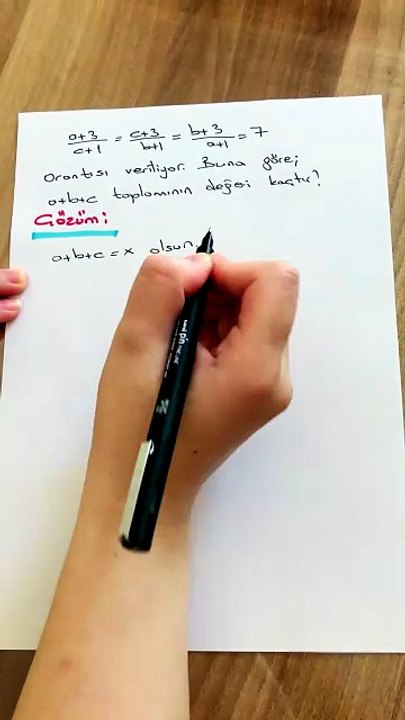 a+3/c+1 = c+3/b+1 = b+3/a+1 = 7
Orantısı veriliyor. Buna göre;
a+b+c toplamının değeri kaçtır?
Çözüm:
a+b+c = x olsun.
uni PIN FINE LINE